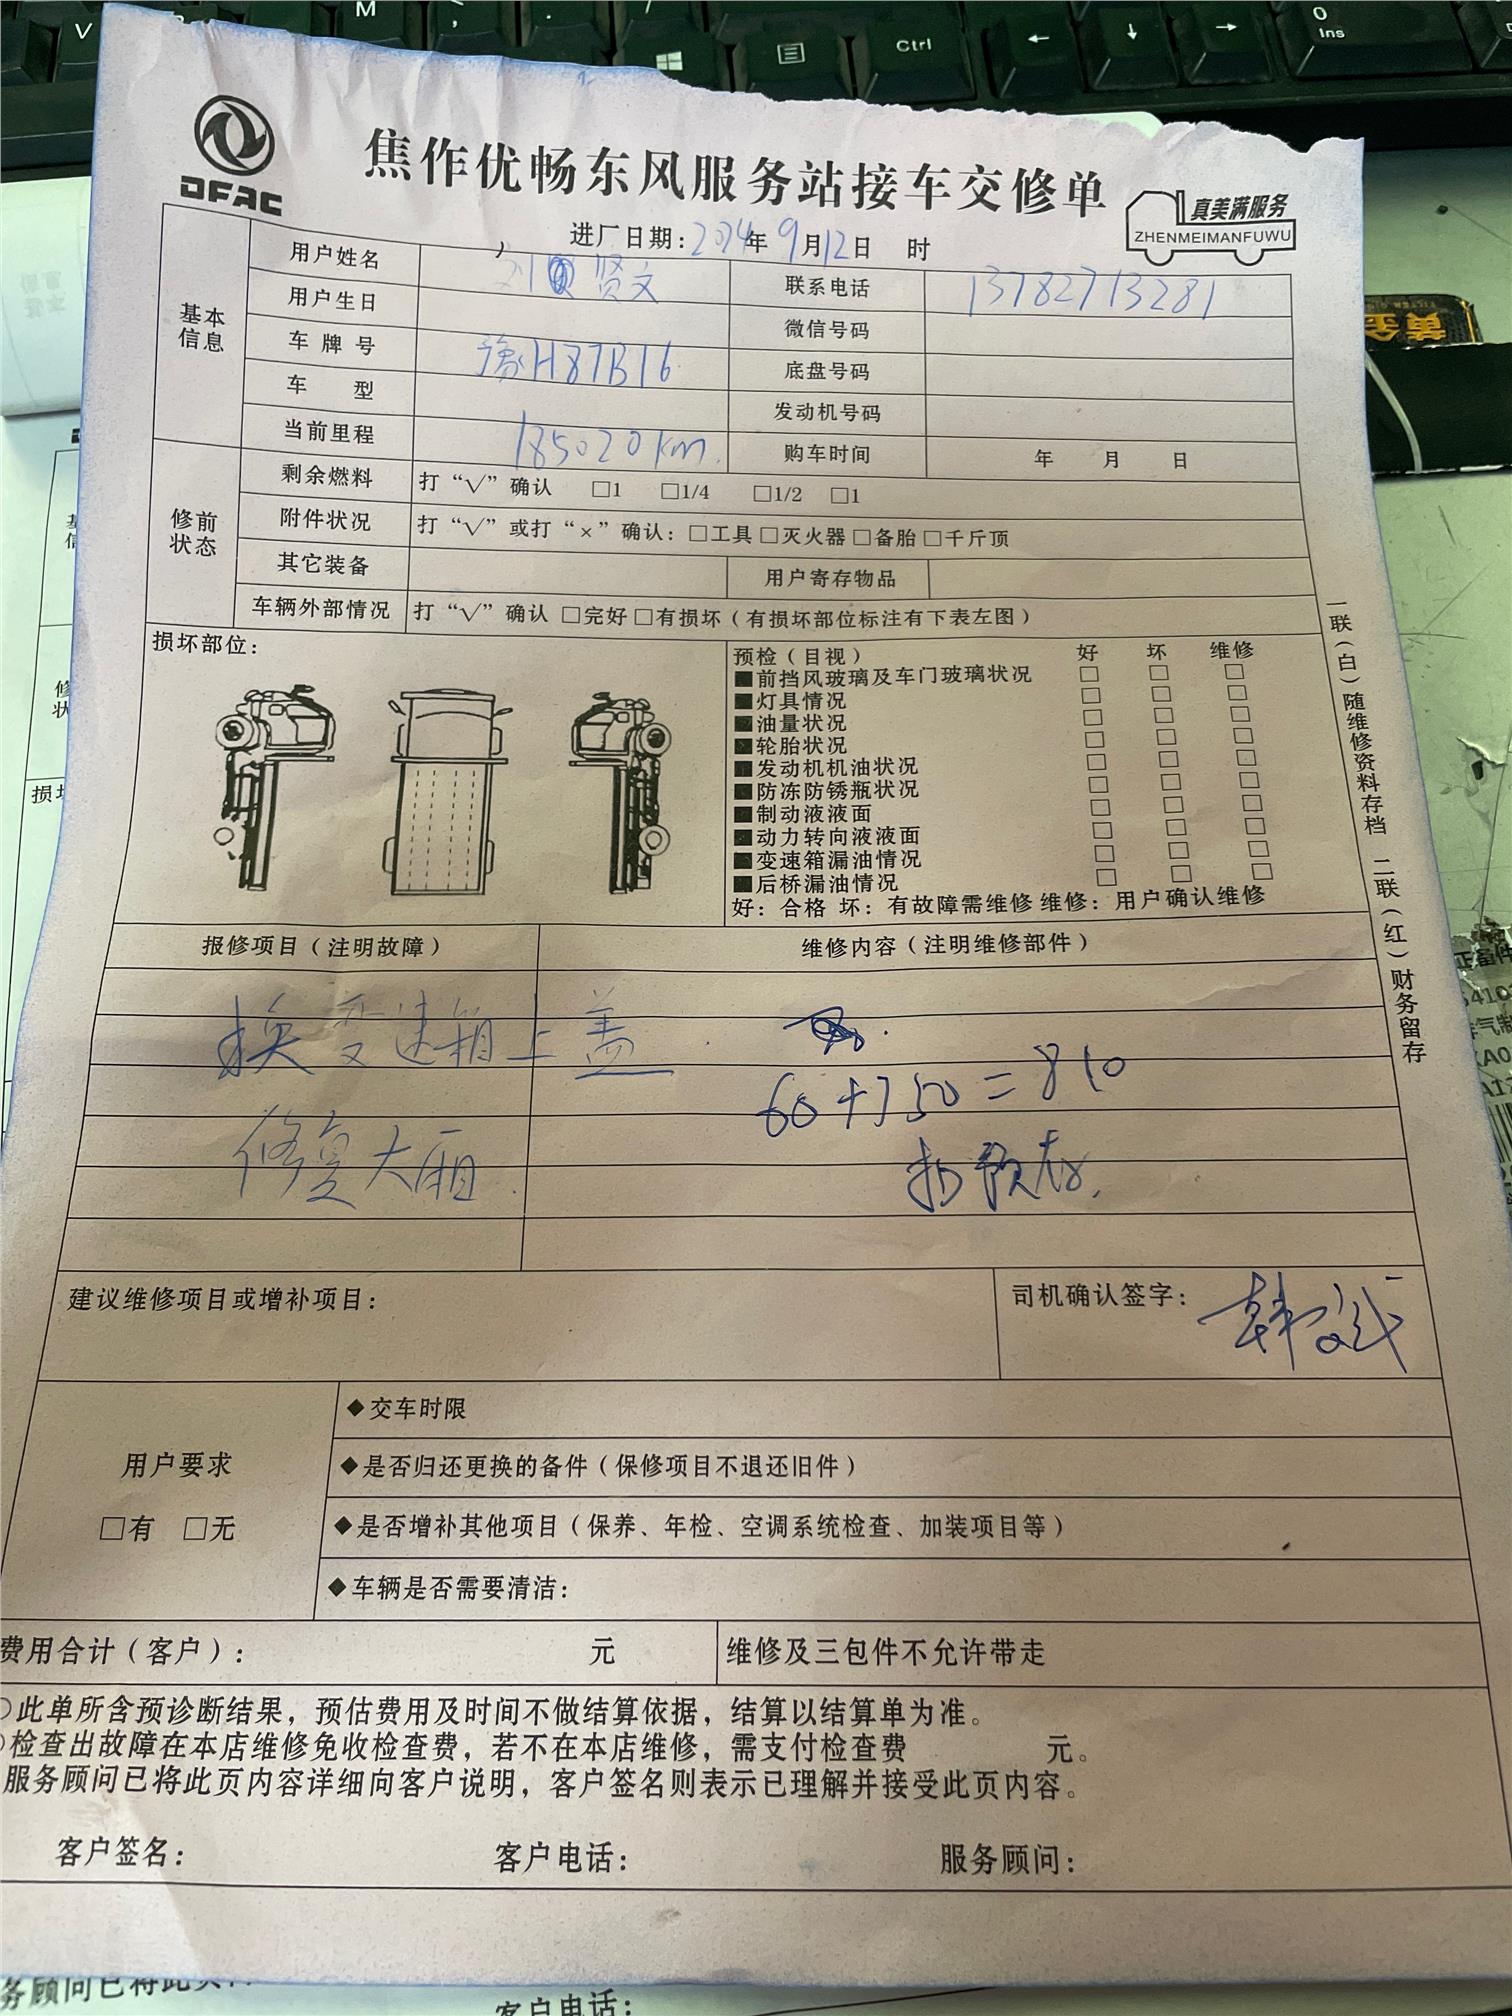 V
M
Ctrl
0
Ins
DFAC
焦作优畅东风服务站接车交修单
真美满服务
ZHENMEIMANFUWU
进厂日期:2024年9月12日 时
基本信息
用户姓名 刘贤文 联系电话 13782713281
用户生日 微信号码
车牌号 豫H87B16 底盘号码
车 型 发动机号码
当前里程 185020km 购车时间 年 月 日
修前状态
剩余燃料 打“√”确认 □1 □1/4 □1/2 □1
附件状况 打“√”或打“×”确认: □工具 □灭火器 □备胎 □千斤顶
其它装备 用户寄存物品
车辆外部情况 打“√”确认 □完好 □有损坏(有损坏部位标注有下表左图)
损坏部位:
预检(目视) 好 坏 维修
■前挡风玻璃及车门玻璃状况 □ □ □
■灯具情况 □ □ □
■油量状况 □ □ □
■轮胎状况 □ □ □
■发动机机油状况 □ □ □
■防冻防锈瓶状况 □ □ □
■制动液液面 □ □ □
■动力转向液液面 □ □ □
■变速箱漏油情况 □ □ □
■后桥漏油情况 □ □ □
好:合格 坏:有故障需维修 维修:用户确认维修
一联(白)随维修资料存档 二联(红)财务留存
报修项目(注明故障) 维修内容(注明维修部件)
换变速箱上盖
60+750=810
修复大厢.
扣预存.
建议维修项目或增补项目:
司机确认签字:
用户要求
□有 □无
◆交车时限
◆是否归还更换的备件(保修项目不退还旧件)
◆是否增补其他项目(保养、年检、空调系统检查、加装项目等)
◆车辆是否需要清洁:
费用合计(客户): 元 维修及三包件不允许带走
此单所含预诊断结果,预估费用及时间不做结算依据,结算以结算单为准。
检查出故障在本店维修免收检查费,若不在本店维修,需支付检查费 元。
服务顾问已将此页内容详细向客户说明,客户签名则表示已理解并接受此页内容。
客户签名: 客户电话: 服务顾问:
客户电话: